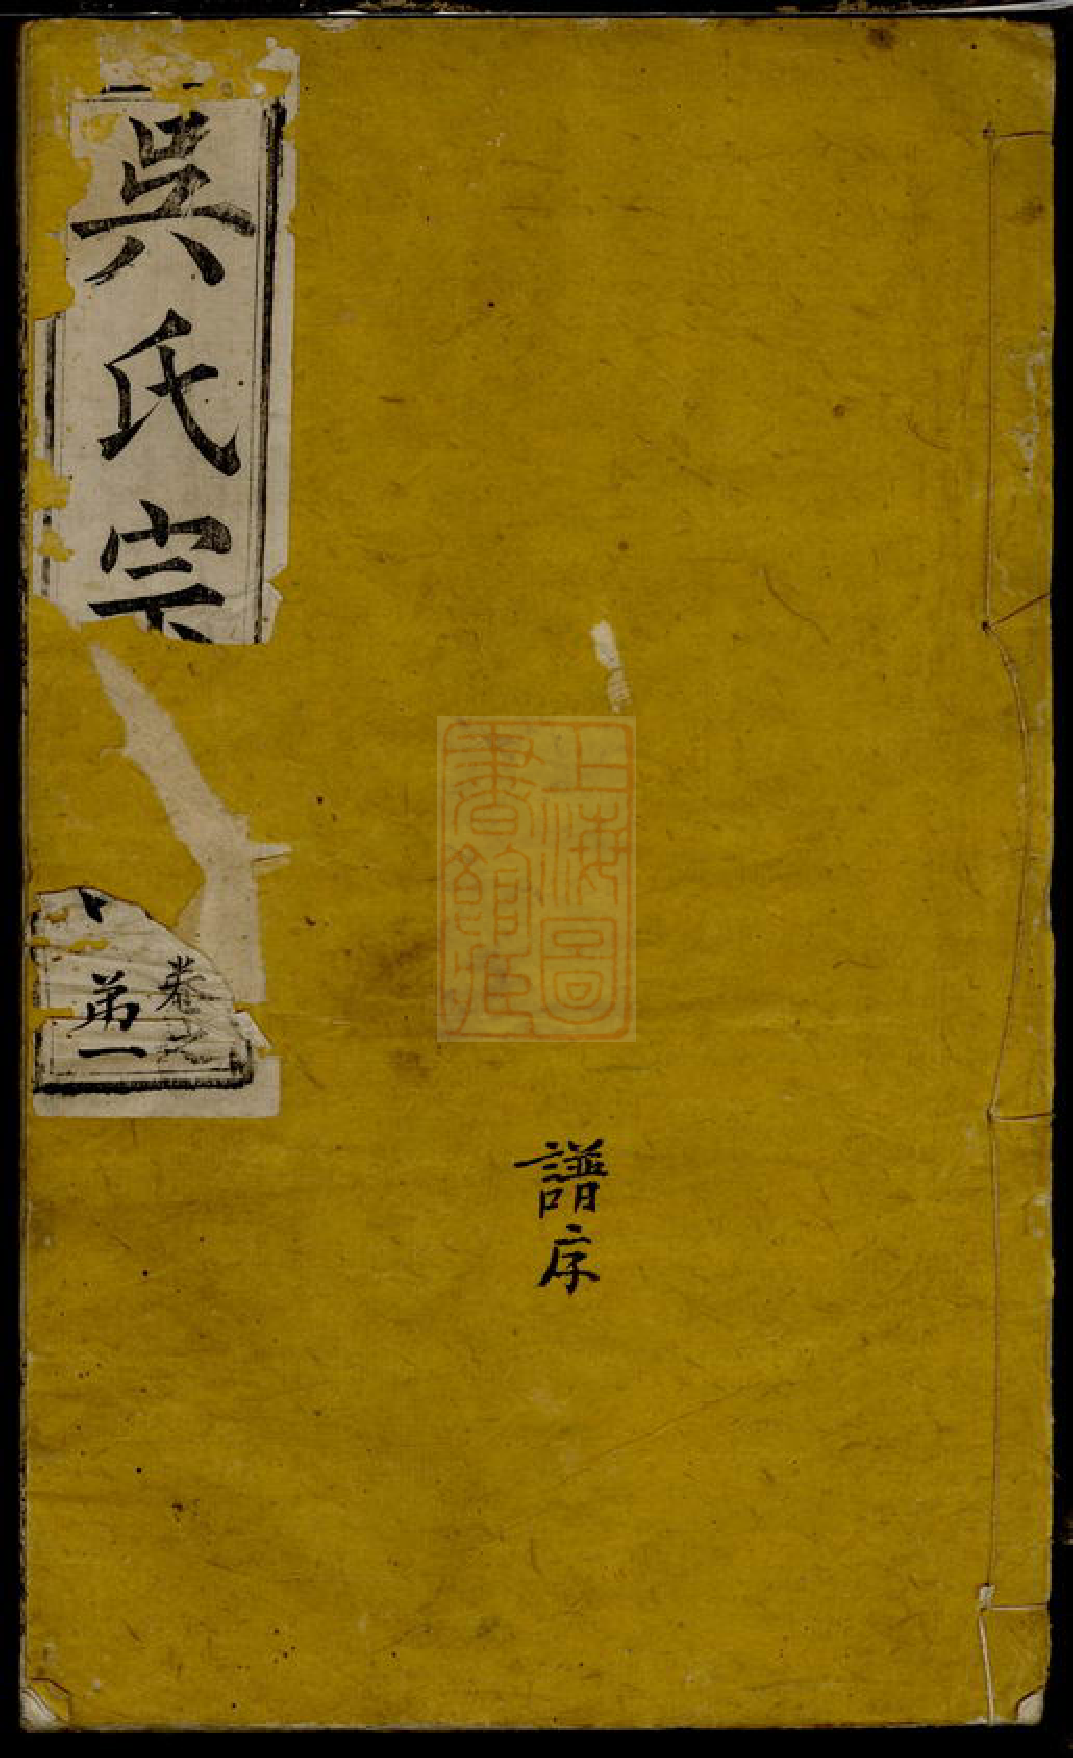 吳氏宗
卷之
弟一
上海圖
書館藏
譜序